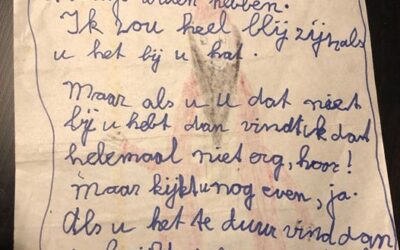 hebben.
Ik zou heel blij zijn als
u het bij u hat.
Maar als u u dat niet
bij u hebt dan vindt ik dat
helemaal niet erg, hoor!
Maar kijkt u nog even, ja.
Als u het te duur vind dan